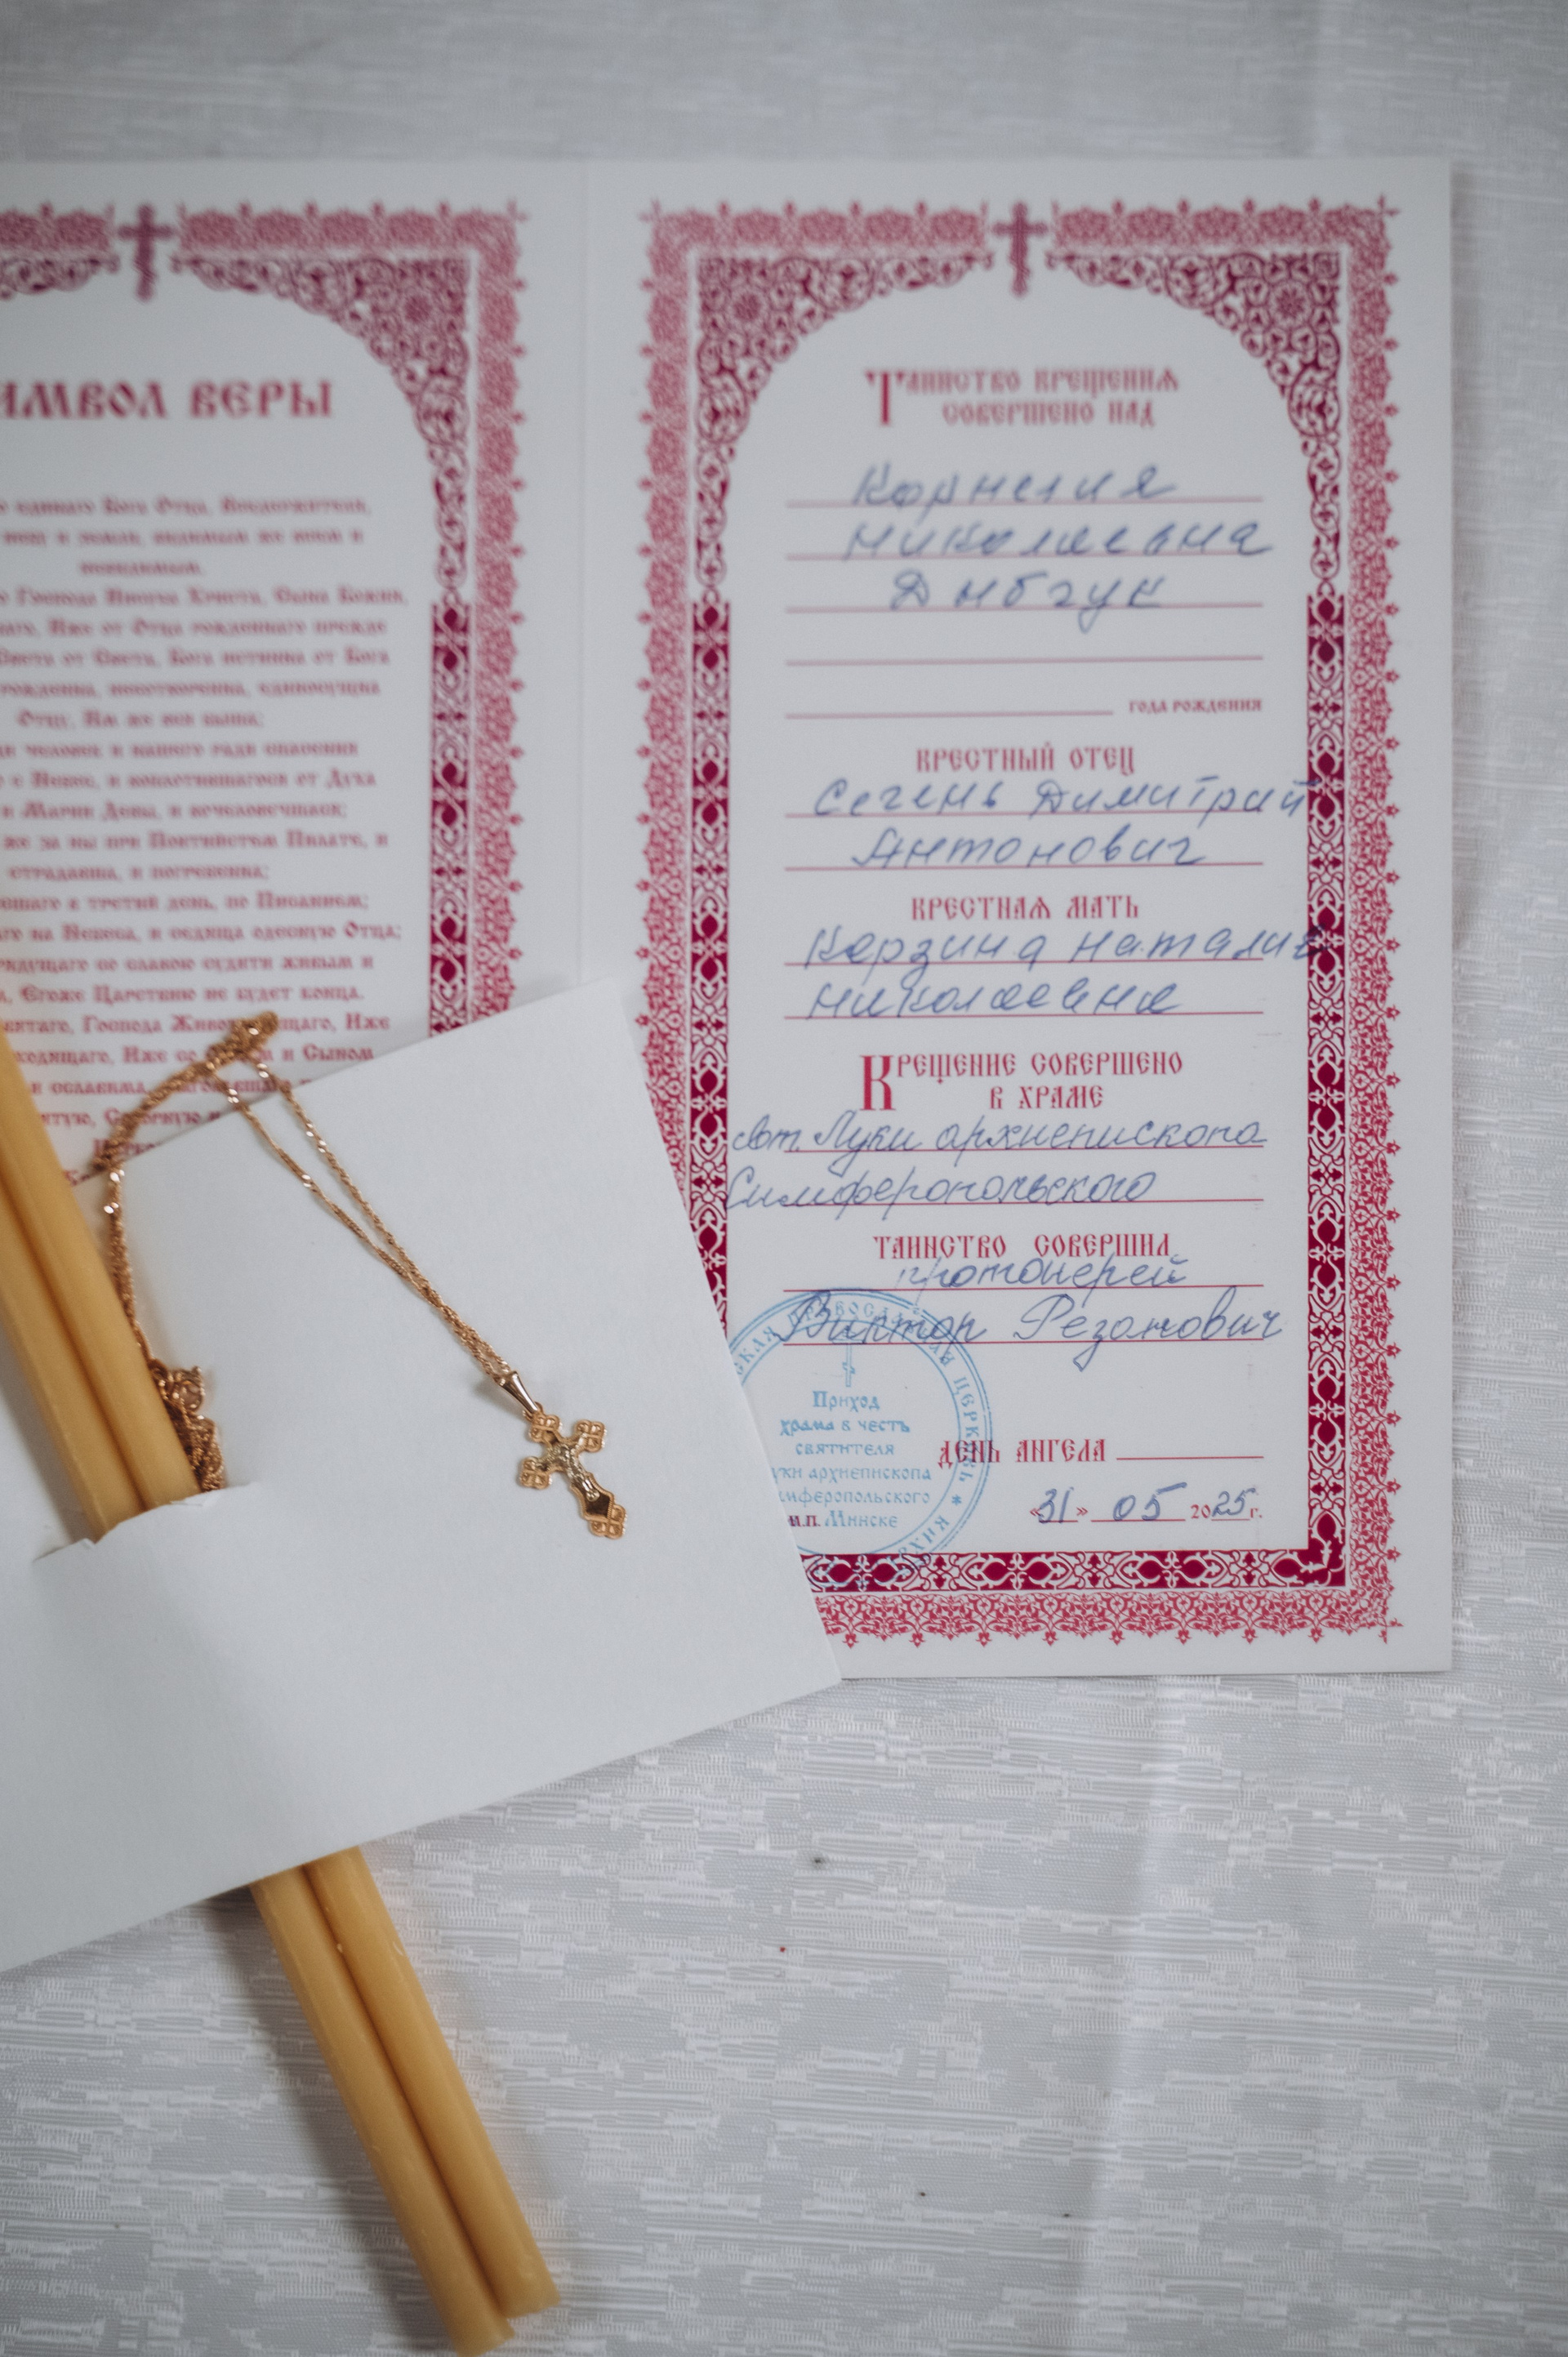 ИМВОЛ ВЕРЫ
единаго Бога Отца, Вседержителя,
небу и земли, видимым же всем и
невидимым.
Господа Иисуса Христа, Сына Божия,
Иже от Отца рожденнаго прежде
Света от Света, Бога истинна от Бога
рожденна, несотворенна, единосущна
Отцу, Им же вся быша;
человек и нашего ради спасения
с Небес, и воплотившагося от Духа
и Марии Девы, и вочеловечшася;
же за ны при Понтийстем Пилате, и
страдавша, и погребенна;
в третий день, по Писанием;
на Небеса, и седяща одесную Отца;
грядущаго со славою судити живым и
Егоже Царствию не будет конца.
Господа Иже
Иже со и Сыном
и
Таинство Крещения
совершено над
Корнелия
Николаевна
года рождения
крестный отец
Сегень Димитрий
Антонович
крестная мать
Корзина Наталия
Николаевна
Крещение совершено
в храме
свт. Луки архиепископа
Симферопольского
таинство совершил
протоиерей
Виктор Резанович
Приход
храма в честь
святителя
уки архиепископа
имферопольского
м.п. Минске
ЦЕРКОВЬ *
день ангела
«31» 05 2025г.